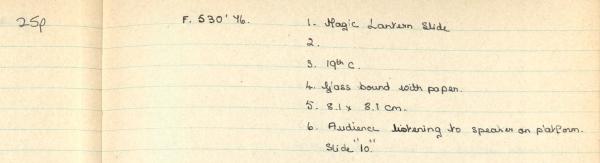 25p F. 530'76. 1. Magic Lantern Slide
2.
3. 19th C.
4. Glass bound with paper.
5. 8.1 x 8.1 cm.
6. Audience listening to speaker on platform.
Slide "10."